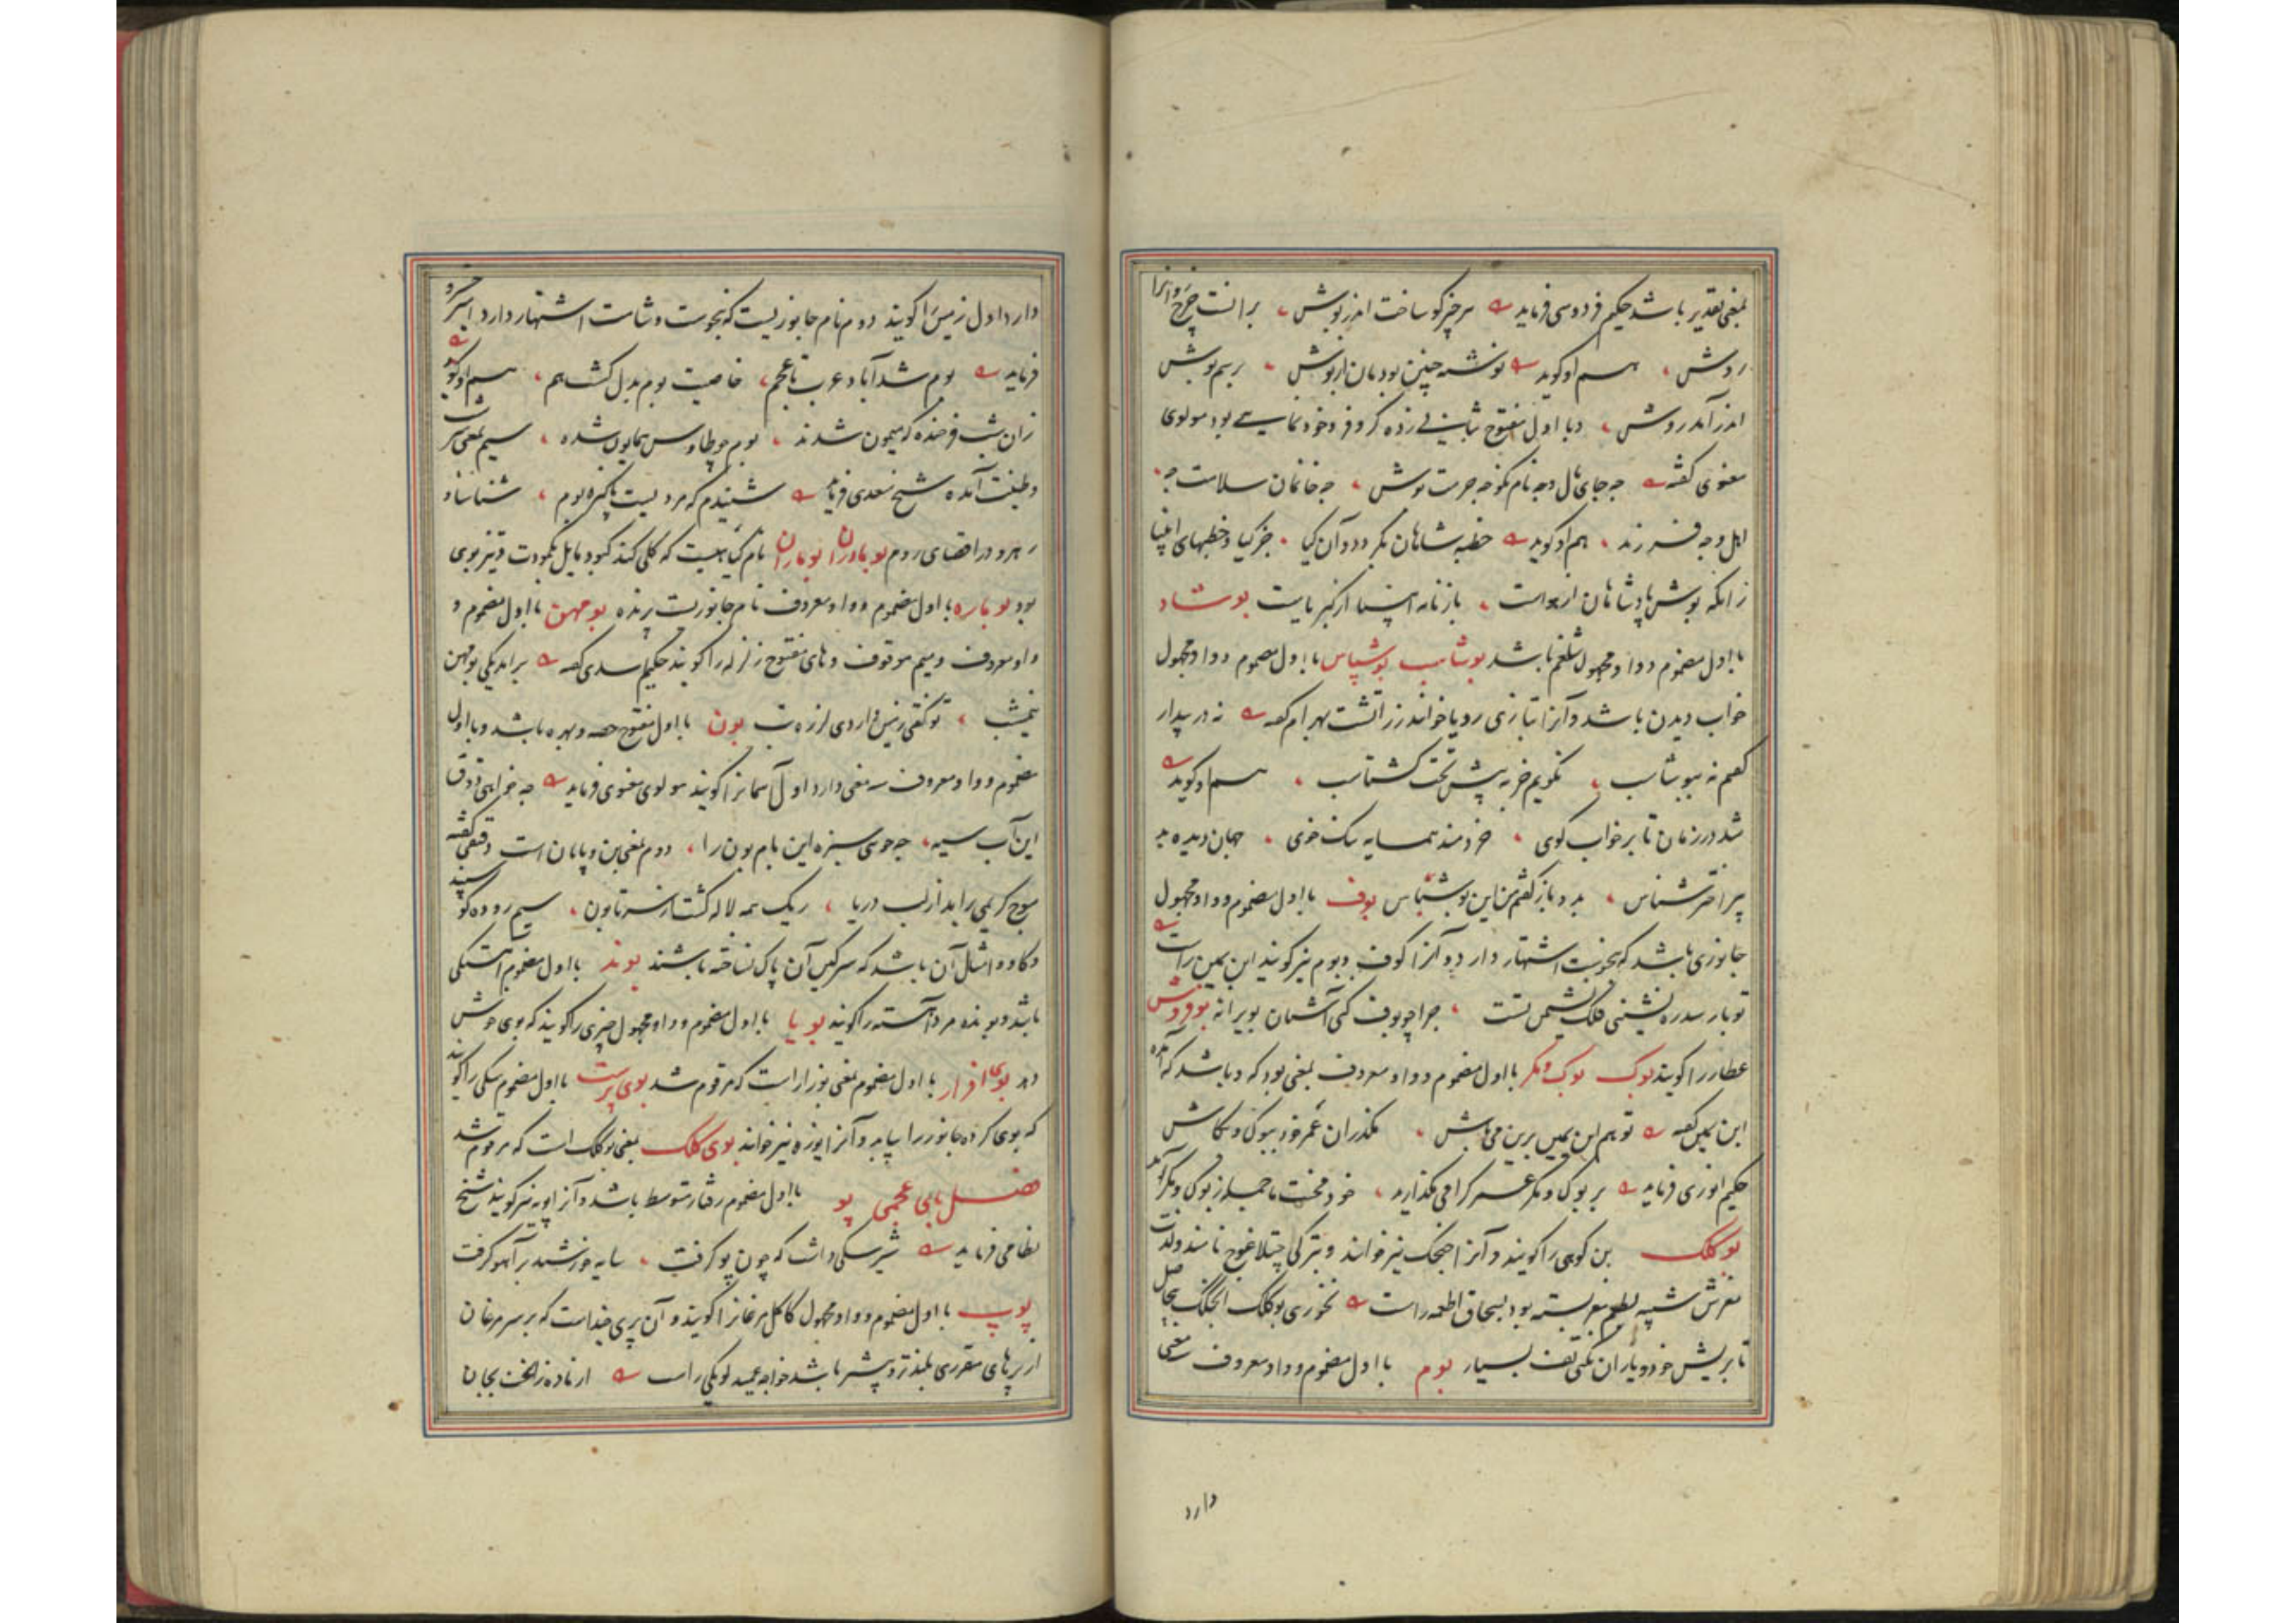 بمعنی تقدیر باشد حکیم فردوسی فرماید هر چیز کو ساخت اندر بوش بر آنست چرخ روانرا
روش هم او گوید نوشته چنین بودمان از بوش برسم بوش
اندر آمد روش و با اول مفتوح کر و فر و خودنمایی بود مولوی
معنوی گفته چه جای مال و چه نام نکو و حرمت و بوش چه خانمان سلامت چه
اهل و چه فرزند هم او گوید خطبه شاهان بگردد و آن کیا جز کیا و خطبهای انبیا
زانکه بوش پادشاهان از هواست بارنامه انبیا از کبریاست بوشاد
با اول مضموم و واو مجهول شلغم باشد بوشاسب بوشپاس با اول مضموم و واو مجهول
خواب دیدن باشد و آنرا بتازی رویا خوانند زراتشت بهرام گفته نه در بیدار
گفتم نه ببوشاسب نگویم جز به پیش تخت گشتاسب هم او گوید
شد در زمان تا بر خواب گوی خردمند همسایه نیک خوی جهان دیده بد
پیر اختر شناس بدو باز گفتم من این بوشپاس بوف با اول مضموم و واو مجهول
جانوری باشد که بنحوست اشتهار دارد و آنرا کوف و بوم نیز گویند ابن یمین راست
تو باز سدره نشینی فلک نشیمن تست چرا چو بوف کنی آشیان بویرانه بوفروش
عطار را گویند بوک بوک و مگر با اول مضموم و واو معروف بمعنی بود که و باشد که آمده
ابن یمین گفته تو هم ابن یمین برین می باش مگذران عمر خود ببوک و بکاش
حکیم انوری فرماید بر بوک و مگر عمر گرامی مگذارید خود محنت ما جمله ز بوک و مگر آمد
بوکلک بن کوهی را گویند و آنرا نیز خوانند و بترکی چتلاغوج نامند و لذت
مغزش شبیه بطعم مغز پسته بود بسحاق اطعمه راست نخوری بوکلک
تا بریش خود و یاران نکنی تف بسیار بوم با اول مضموم و واو معروف معنی
دارد
دارد اول زمین را گویند دوم نام جانوریست که بنحوست و شآمت اشتهار دارد امیر خسرو
فرماید بوم شد آباد عرب تا عجم خاصیت بوم بدل گشت هم هم او گوید
زان شب فرخنده که میمون شدند بوم چو طاوس همایون شده سیم بمعنی سرشت
و طینت آمده شیخ سعدی فرماید شنیدم که مردیست پاکیزه بوم شناسا و
رهرو در اقصای روم بومادران بوماران نام گیاهیست که گلی کند کبود مایل بکمودت و تیز بوی
بود بوباره با اول مضموم و واو معروف نام جانوریست پرنده بومهن با اول مضموم و
واو معروف و میم موقوف و های مفتوح زلزله را گویند حکیم اسدی گفته برآمد یکی بومهن
نیمشب تو گفتی زمین دارد لرزه تب بون با اول مفتوح حصه و بهره باشد و با اول
مضموم و واو معروف سه معنی دارد اول آسمانرا گویند مولوی معنوی فرماید
این آب سیه چه جوی سبزه این بام بون را دوم بمعنی بن و پایان است دقیقی گفته
موج کریمی برآمد از لب دریا ریک همه لاله گشت از سر تا بون سیم روده گوسپند
و گاو و امثال آن باشد که سرگین آن پاک نساخته باشند بوند با اول مضموم آهستگی
باشد و بونده مرد آهسته را گویند بویا با اول مضموم و واو مجهول چیزی را گویند که بوی خوش
دهد بوی افزار با اول مضموم بمعنی بوزار است که مرقوم شد بوی پرست با اول مضموم سگی را گویند
که بوی کرده جانور را بیابد و آنرا یوزه نیز خوانند بوی کلک بمعنی بوکلک است که مرقوم شد
فصل بای عجمی پو با اول مضموم رفتار متوسط باشد و آنرا پویه نیز گویند شیخ
نظامی فرماید شیر سگی داشت که چون پو گرفت سایه خورشید بر آهو گرفت
پوپ با اول مضموم و واو مجهول کاکل مرغانرا گویند و آن پری چند است که بر سر مرغان
از پرهای مقرری بلندتر و بیشتر باشد خواجه عمید لویکی راست